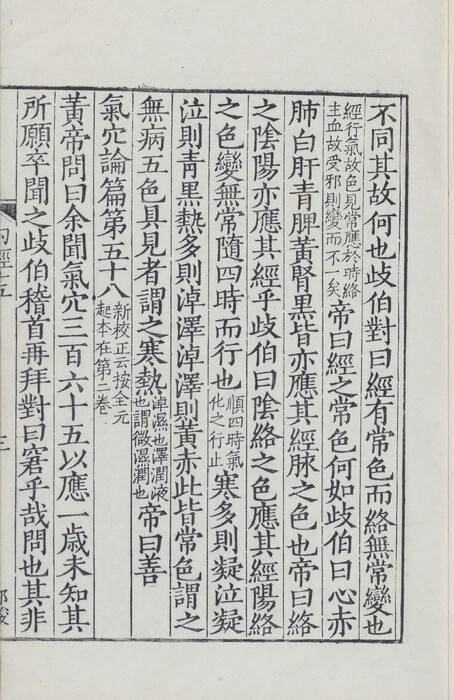 不同其故何也歧伯對曰經有常色而絡無常變也
經行氣故色見常應於時絡
主血故受邪則變而不一矣
帝曰經之常色何如歧伯曰心赤
肺白肝青脾黃腎黑皆亦應其經脉之色也帝曰絡
之陰陽亦應其經乎歧伯曰陰絡之色應其經陽絡
之色變無常隨四時而行也
順四時氣
化之行止
寒多則凝泣凝
泣則青黑熱多則淖澤淖澤則黃赤此皆常色謂之
無病五色具見者謂之寒熱
淖濕也澤潤液
也謂微濕潤也
帝曰善
氣穴論篇第五十八
新校正云按全元
起本在第二卷
黃帝問曰余聞氣穴三百六十五以應一歲未知其
所願卒聞之歧伯稽首再拜對曰窘乎哉問也其非